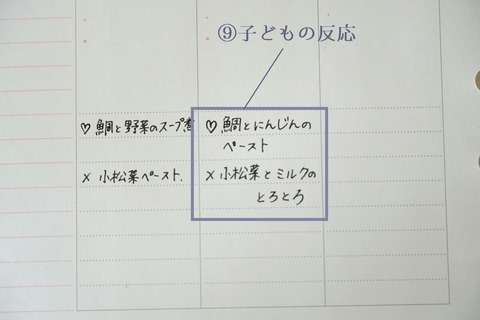 ⑨子どもの反応
♡ 鯛と野菜のスープ煮
× 小松菜ペースト.
♡ 鯛とにんじんの
ペースト
× 小松菜とミルクの
とろとろ